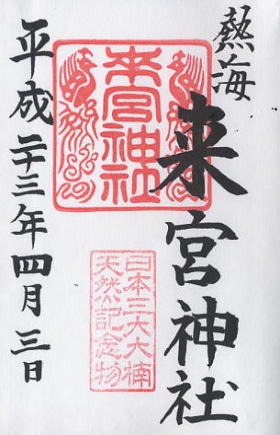 熱海
来宮神社
来宮神社
日本三大大楠
天然記念物
平成二十三年四月三日